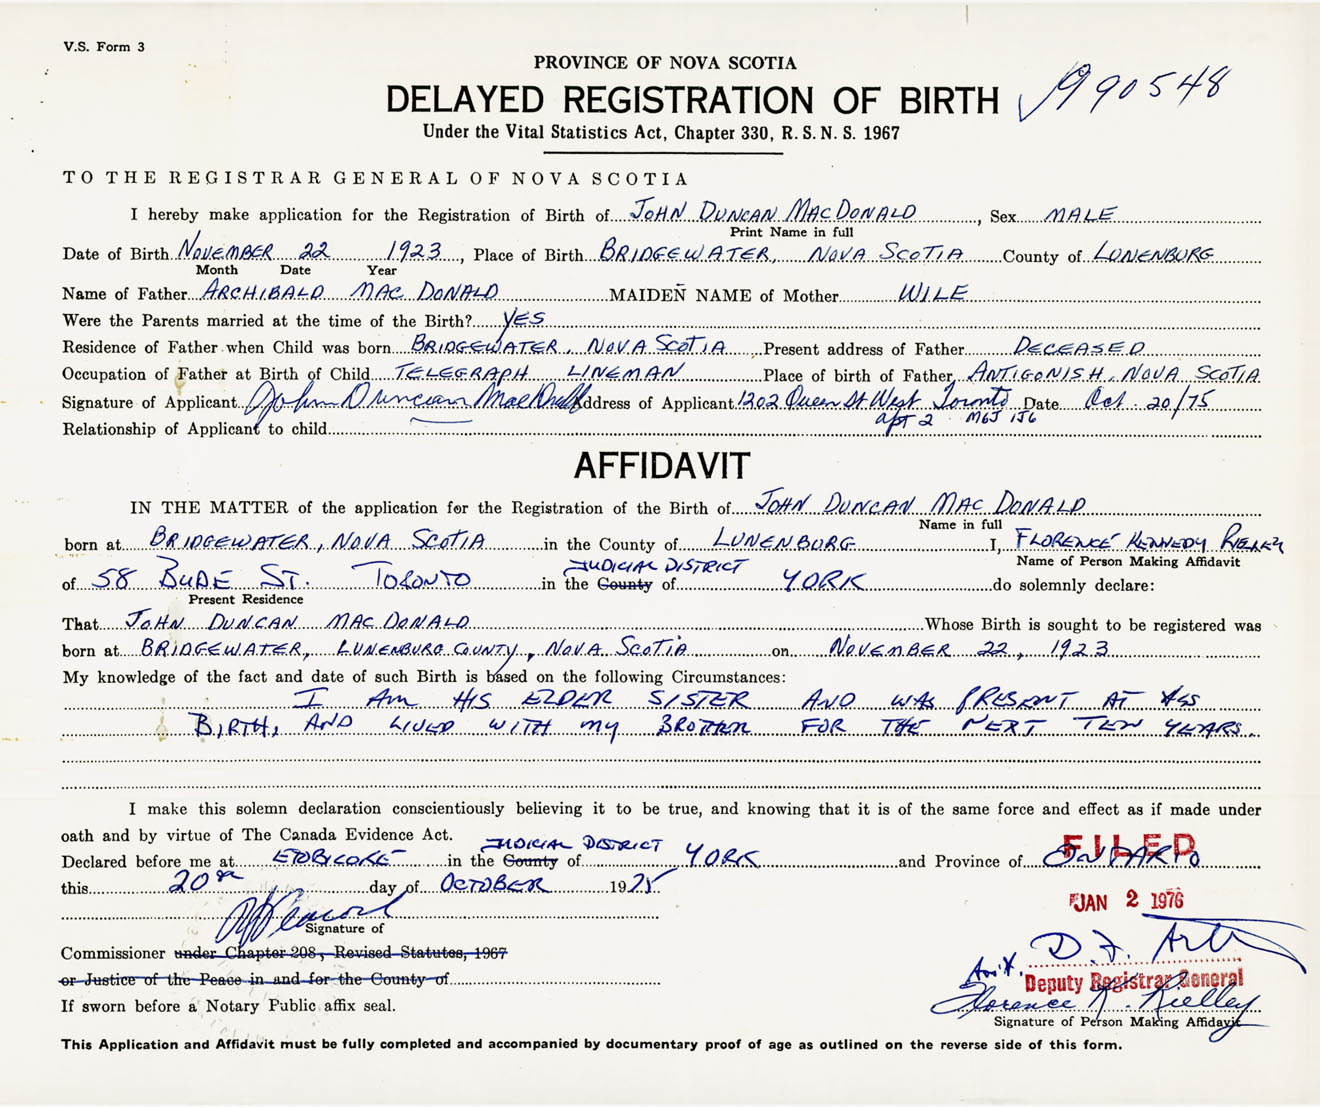 V.S. Form 3
PROVINCE OF NOVA SCOTIA
DELAYED REGISTRATION OF BIRTH 990548
Under the Vital Statistics Act, Chapter 330, R. S. N. S. 1967
TO THE REGISTRAR GENERAL OF NOVA SCOTIA
I hereby make application for the Registration of Birth of JOHN DUNCAN MACDONALD, Sex MALE
Print Name in full
Date of Birth NOVEMBER 22 1923, Place of Birth BRIDGEWATER, NOVA SCOTIA County of LUNENBURG
Month Date Year
Name of Father ARCHIBALD MAC DONALD MAIDEN NAME of Mother WILE
Were the Parents married at the time of the Birth? YES
Residence of Father when Child was born BRIDGEWATER, NOVA SCOTIA Present address of Father DECEASED
Occupation of Father at Birth of Child TELEGRAPH LINEMAN Place of birth of Father ANTIGONISH, NOVA SCOTIA
Signature of Applicant John Duncan MacDonald Address of Applicant 1202 Queen St West Toronto Date Oct. 20/75
apt 2 M6J 1J6
Relationship of Applicant to child
AFFIDAVIT
IN THE MATTER of the application for the Registration of the Birth of JOHN DUNCAN MAC DONALD
Name in full
born at BRIDGEWATER, NOVA SCOTIA in the County of LUNENBURG I, FLORENCE KENNEDY RIELLEY
Name of Person Making Affidavit
JUDICIAL DISTRICT
of 58 BUDE ST. TORONTO in the County of YORK do solemnly declare:
Present Residence
That JOHN DUNCAN MAC DONALD Whose Birth is sought to be registered was
born at BRIDGEWATER, LUNENBURG COUNTY, NOVA SCOTIA on NOVEMBER 22, 1923
My knowledge of the fact and date of such Birth is based on the following Circumstances:
I AM HIS ELDER SISTER AND WAS PRESENT AT HIS
BIRTH, AND LIVED WITH MY BROTHER FOR THE NEXT TEN YEARS.
I make this solemn declaration conscientiously believing it to be true, and knowing that it is of the same force and effect as if made under
oath and by virtue of The Canada Evidence Act.
JUDICIAL DISTRICT
FILED
Declared before me at ETOBICOKE in the County of YORK and Province of ONTARIO
this 20th day of OCTOBER 1975
JAN 2 1976
Signature of
Commissioner under Chapter 208, Revised Statutes, 1967
D. F.
or Justice of the Peace in and for the County of
Deputy Registrar General
If sworn before a Notary Public affix seal.
Florence K. Rielley
Signature of Person Making Affidavit
This Application and Affidavit must be fully completed and accompanied by documentary proof of age as outlined on the reverse side of this form.